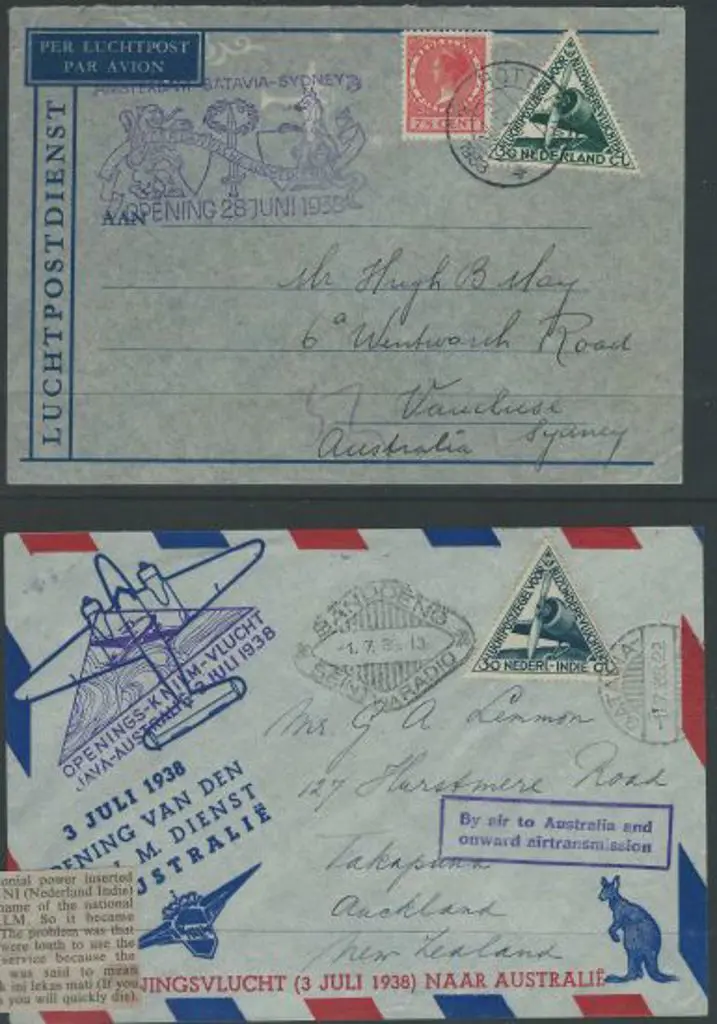 PER LUCHTPOST
PAR AVION
LUCHTPOSTDIENST
AMSTERDAM-BATAVIA-SYDNEY
OPENING 28 JUNI 1938
AAN
7½ CENT
ROTT
1938
30 NEDERLAND CT.
Mr Hugh B May
6a Wentworth Road
Vaucluse
Sydney
Australia
OPENINGS-KNILM-VLUCHT
JAVA-AUSTRALIE 3 JULI 1938
3 JULI 1938
OPENING VAN DEN
L. M. DIENST
USTRALIË
BANDOENG
-1.7.38.13
30 NEDERL-INDIE CT.
BATAVIA
-1.7.38.22
Mr. G A Lemmon
127 Hurstmere Road
Takapuna
Auckland
New Zealand
By air to Australia and
onward airtransmission
onial power inserted
NI (Nederland Indie)
name of the national
LLM. So it became
The problem was that
were louth to use the
service because the
was said to mean
k ini lekas mati (If you
you will quickly die).
JINGSVLUCHT (3 JULI 1938) NAAR AUSTRALIË